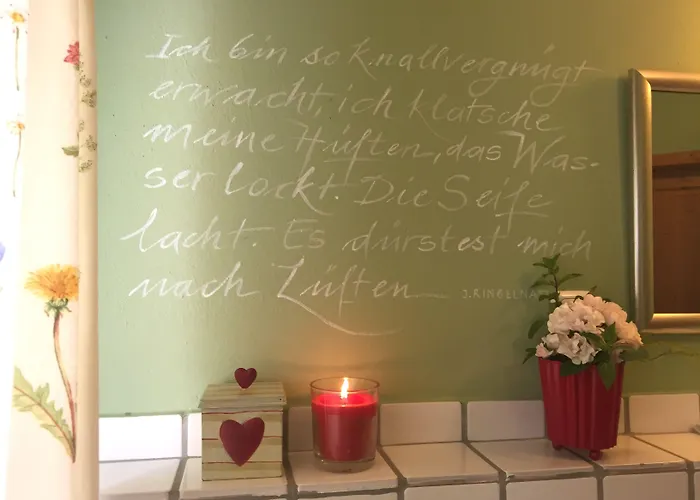 Ich bin so knallvergnügt
erwacht, ich klatsche
meine Hüften, das Was-
ser lockt. Die Seife
lacht. Es dürstet mich
nach Lüften
J. RINGELNA